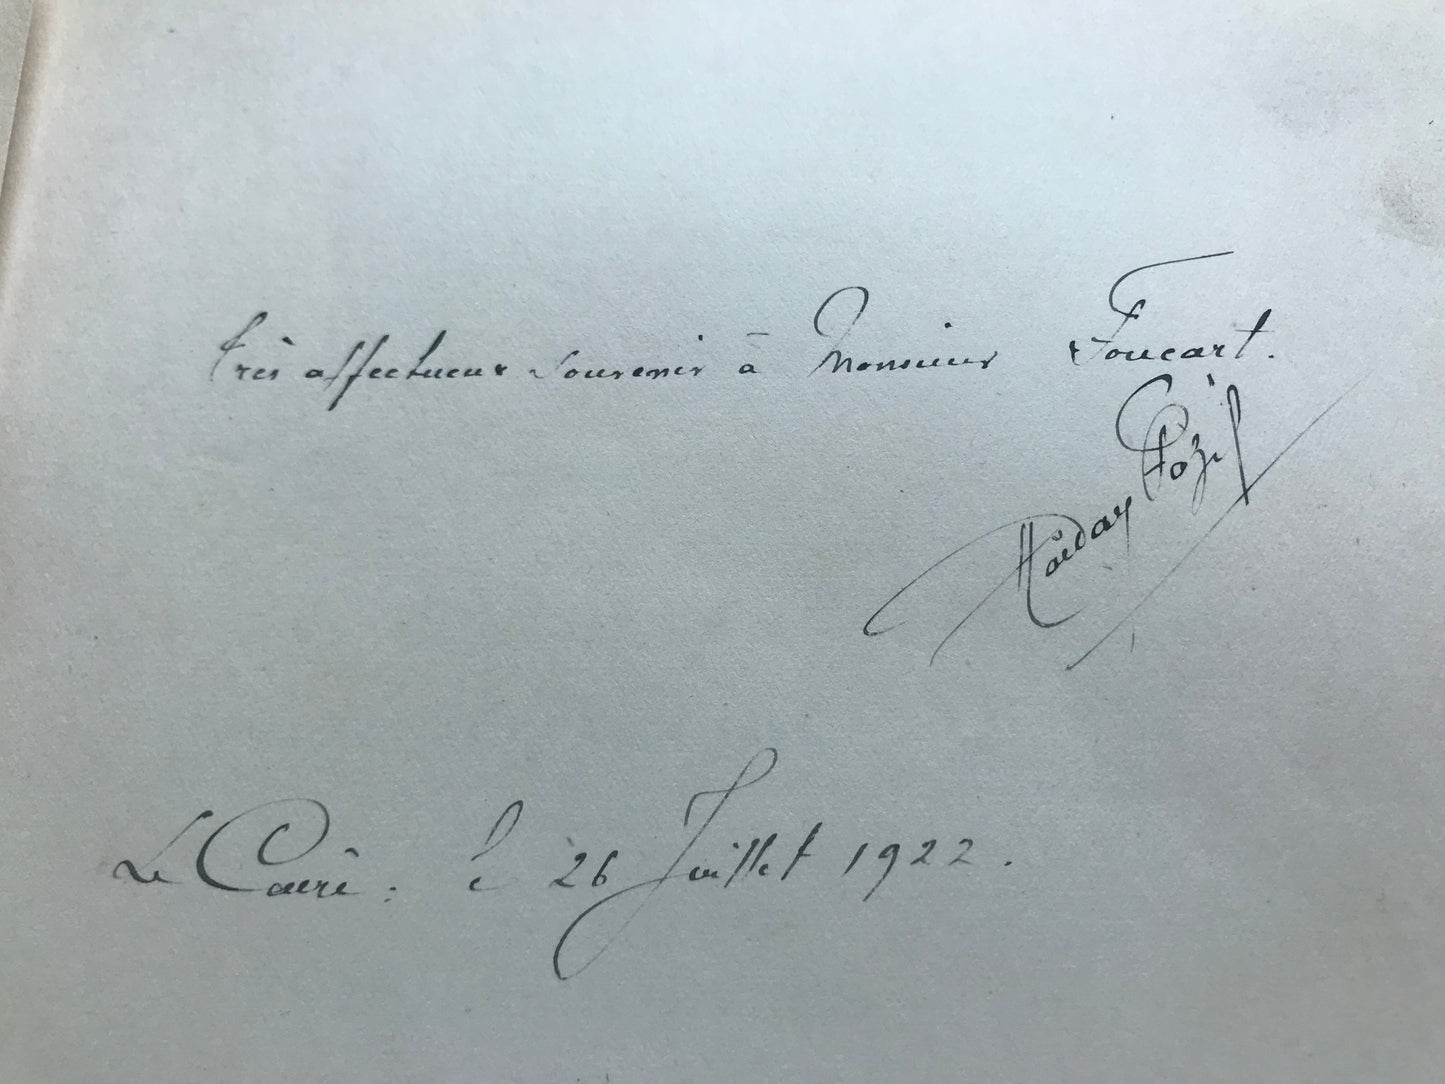 très affectueux souvenir à Monsieur Foucart.
Haïdar Fazil
Le Caire. le 26 Juillet 1922.